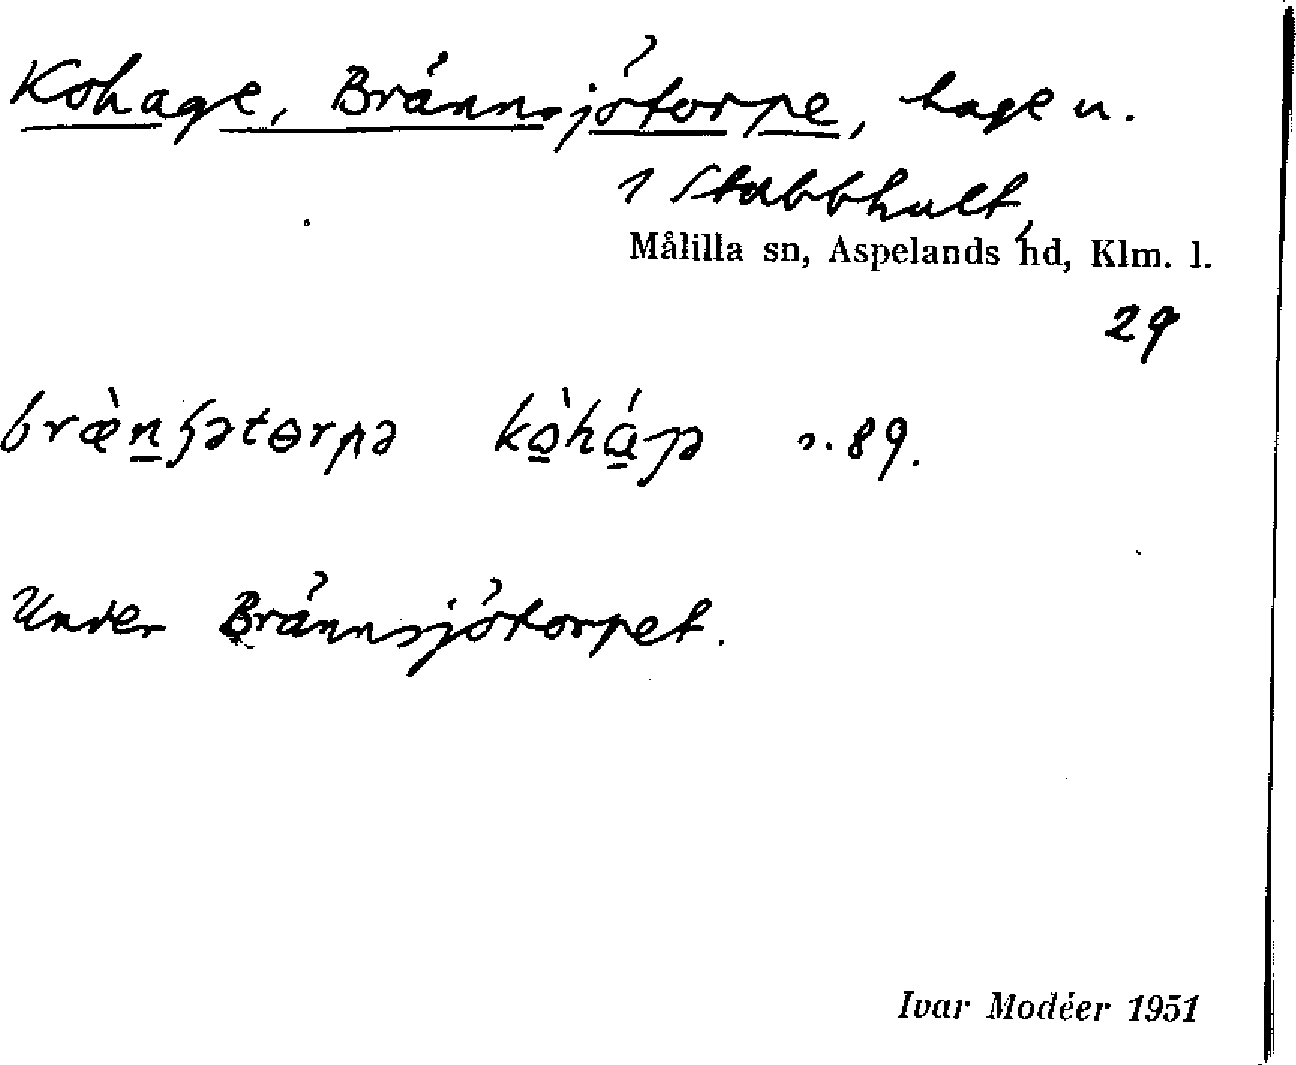 Kohage, Brännsjötorpe, hage u.
1 Stabbhult,
Målilla sn, Aspelands hd, Klm. l.
29
bræ̀n̲ʂətɵrpə kò̲há̲gə s. 89.
Under Brännsjötorpet.
Ivar Modéer 1951